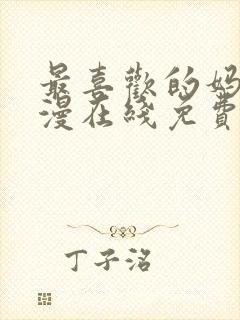 最喜歡的妈
漫在线免費
丁子洛